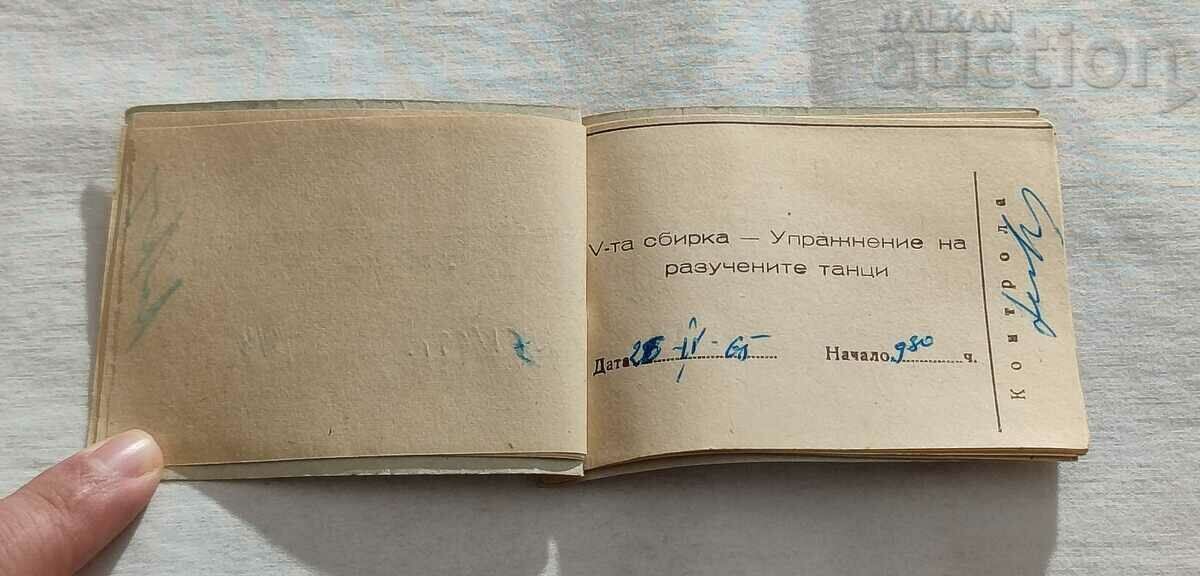 BALKAN
auction
V-та сбирка — Упражнение на
разучените танци
Дата IV - 65 Начало 9 30 ч.
Контрола